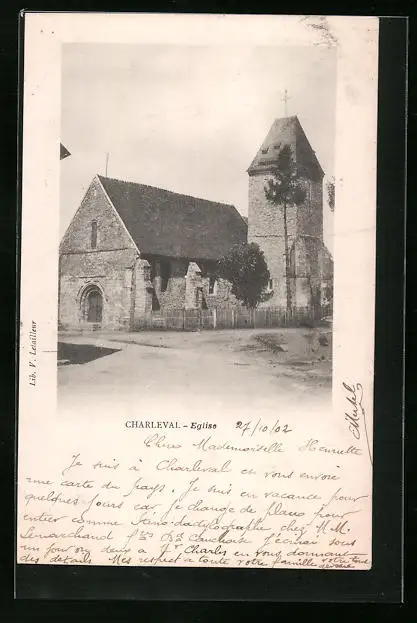 CHARLEVAL - Eglise 27/10/02
Lib. V. Letailleur
Chère Mademoiselle Henriette
Je suis à Charleval et vous envoie
une carte du pays. Je suis en vacance pour
quelques jours car je change de place pour
entrer comme Sténo-dactylographe chez M.M.
Lemarchand f Cauchois J'écrirai sous
un jour ou deux à Charles en vous donnant
des détails Mes respect à toute votre famille votre tout